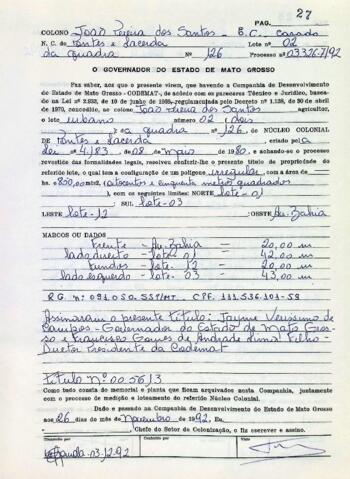 PAG. 27
COLONO João Pereira dos Santos - B.C. casado
N. C. de Pontes e Lacerda Lote nº 02
da quadra Nº 126 Processo nº 03326-7/92
O GOVERNADOR DO ESTADO DE MATO GROSSO
Faz saber, aos que o presente virem, que havendo a Companhia de Desenvolvimento
do Estado de Mato Grosso - CODEMAT, de acôrdo com os pareceres Técnico e Jurídico, basea-
do na Lei nº 2.933, de 19 de junho de 1969, regulamentada pelo Decreto nº 1.138, de 30 de abril
de 1970, concedido, ao colono João Pereira dos Santos agricultor,
o lote urbano número 02 (dois
) da quadra nº 126, do NÚCLEO COLONIAL
DE Pontes e Lacerda, criado pela
Lei nº 4.183, de 08 de maio de 1980, e achando-se o processo
revestido das formalidades legais, resolveu conferir-lhe o presente título de propriedade do
referido lote, o qual tem a configuração de um polígono irregular com a área de
hs. 850,00 mtr2, (oitocentos e cinquenta metros quadrados
), com os seguintes limites: NORTE lote-01
SUL lote-03
LESTE lote-12 :OESTE Av. Bahia
MARCOS OU DADOS
frente - Av. Bahia - 20,00 m
lado direito - lote-01 - 42,00 m
fundos - lote-12 - 20,00 m
lado esquerdo - lote-03 - 43,00 m
RG. nº 091.050.SSP/MT. CPF. 111.536.101-59
Assinaram o presente título: Jayme Veríssimo de
Campos - Governador do Estado de Mato Gros-
so e Francisco Gomes de Andrade Lima Filho -
Diretor Presidente da Codemat
título Nº 005613
Como tudo consta do memorial e planta que ficam arquivados nesta Companhia, juntamente
com o processo de medição e loteamento do referido Núcleo Colonial.
Dado e passado na Companhia de Desenvolvimento do Estado de Mato Grosso
aos 26 dias do mês de novembro de 1992. Eu,
, Chefe do Setor de Colonização, o fiz escrever e assino.
Transcrito por
Conferido por
Visto
03.12.92